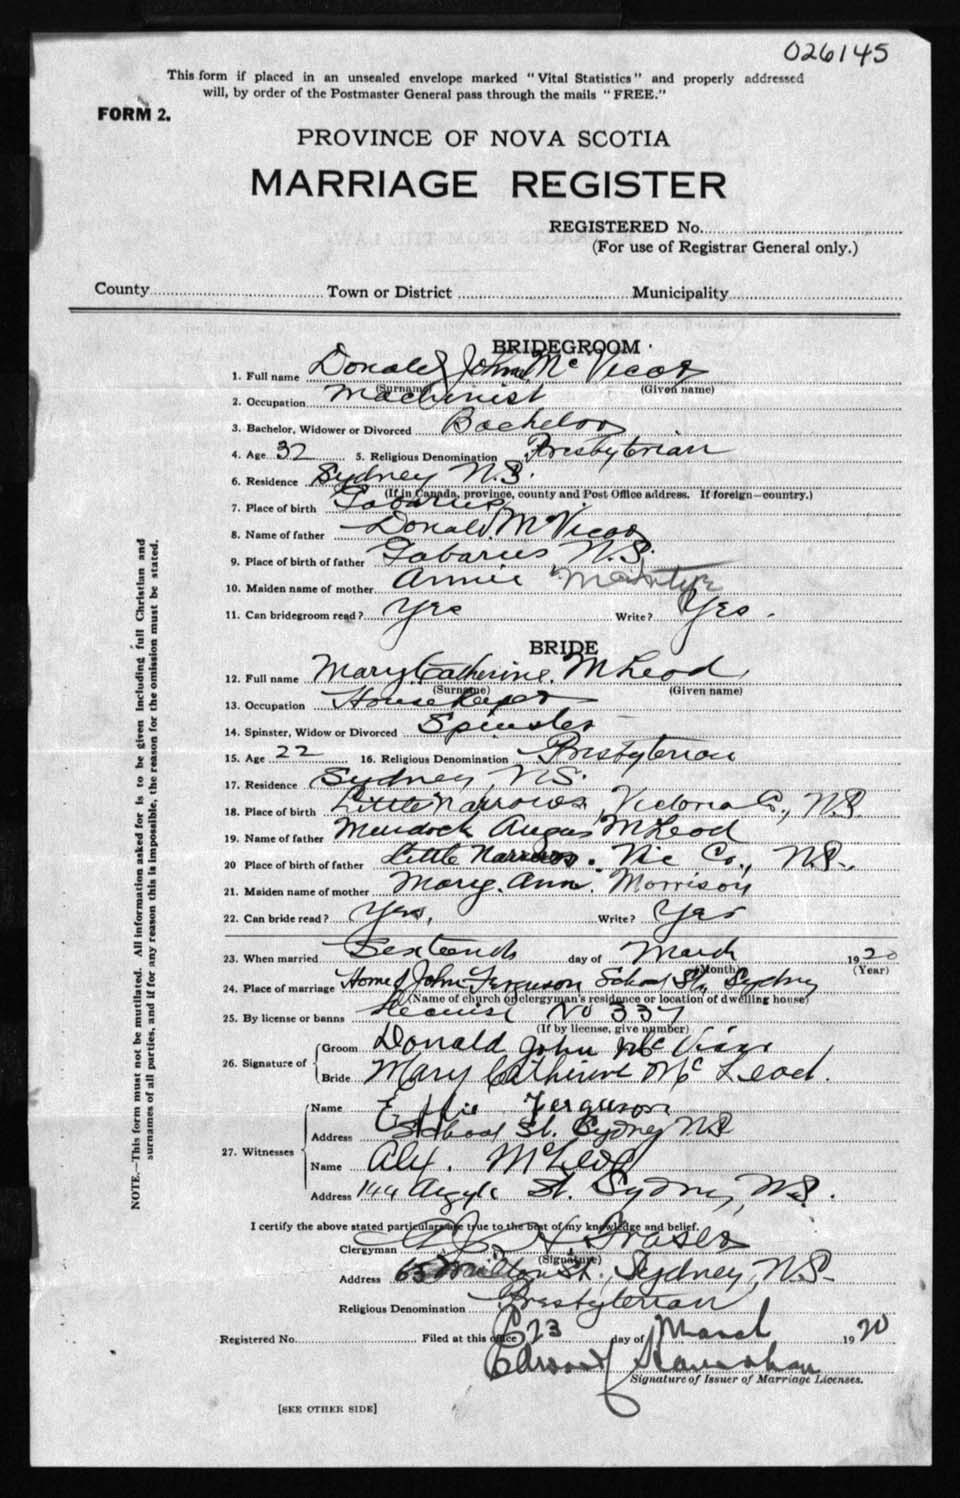 026145
This form if placed in an unsealed envelope marked "Vital Statistics" and properly addressed
will, by order of the Postmaster General pass through the mails "FREE."
FORM 2.
PROVINCE OF NOVA SCOTIA
MARRIAGE REGISTER
REGISTERED No.
(For use of Registrar General only.)
County Town or District Municipality
BRIDEGROOM
1. Full name Donald John McVicar
(Surname) (Given name)
2. Occupation Machinist
3. Bachelor, Widower or Divorced Bachelor
4. Age 32 5. Religious Denomination Presbyterian
6. Residence Sydney N.S.
(If in Canada, province, county and Post Office address. If foreign—country.)
7. Place of birth Gabarus
8. Name of father Donald McVicar
9. Place of birth of father Gabarus N.S.
10. Maiden name of mother Annie McIntyre
11. Can bridegroom read? Yes Write? Yes.
BRIDE
12. Full name Mary Catherine McLeod
(Surname) (Given name)
13. Occupation House Keeper
14. Spinster, Widow or Divorced Spinster
15. Age 22 16. Religious Denomination Presbyterian
17. Residence Sydney, N.S.
18. Place of birth Little Narrows, Victoria Co., N.S.
19. Name of father Murdock Angus McLeod
20 Place of birth of father Little Narrows. Vic Co., N.S.
21. Maiden name of mother Mary Ann Morrison
22. Can bride read? Yes, Write? Yes
23. When married day of March 1920
(Month) (Year)
24. Place of marriage Home of John Ferguson School St., Sydney
(Name of church or clergyman's residence or location of dwelling house)
25. By license or banns No 337
(If by license, give number)
26. Signature of Groom Donald John McVicar
Bride Mary Catherine McLeod.
27. Witnesses
Name Effie Ferguson
Address School St. Sydney NS
Name Alex. McLeod
Address 144 Argyle St. Sydney, N.S.
I certify the above stated particulars are true to the best of my knowledge and belief.
Clergyman Fraser
(Signature)
Address 65 St., Sydney, N.S.
Religious Denomination Presbyterian
Registered No. Filed at this office 23 day of March 1920
Signature of Issuer of Marriage Licenses.
[SEE OTHER SIDE]
NOTE.—This form must not be mutilated. All information asked for is to be given including full Christian and
surnames of all parties, and if for any reason this is impossible, the reason for the omission must be stated.